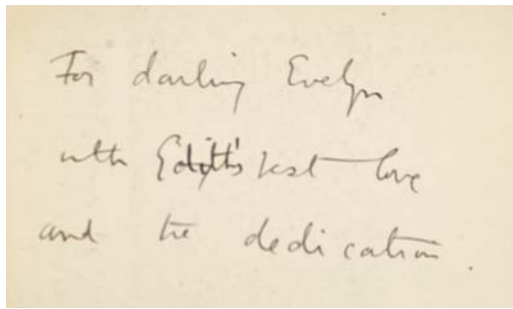 For darling Evelyn
with Edith's best love
and the dedication.